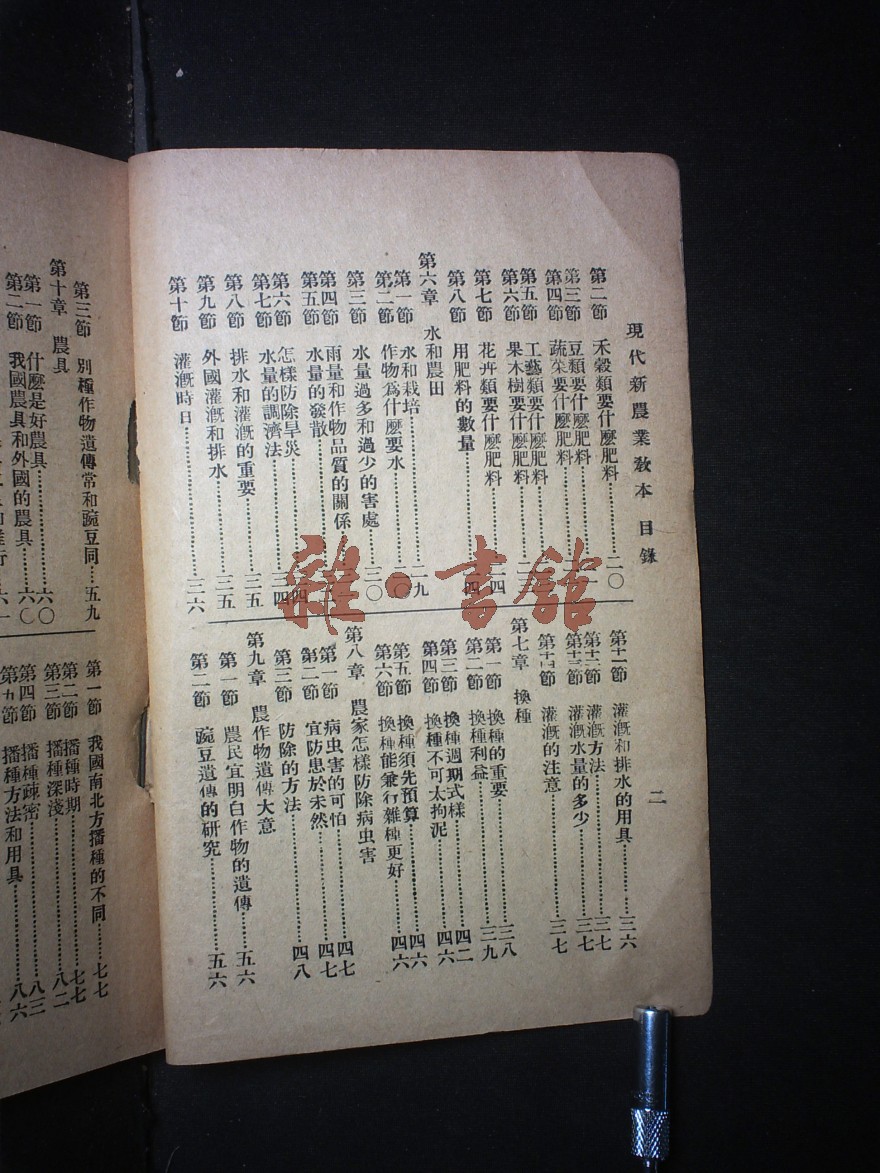 現代新農業教本 目錄
二
第二節 禾穀類要什麽肥料 二〇
第三節 豆類要什麽肥料
第四節 蔬菜要什麽肥料
第五節 工藝類要什麽肥料
第六節 果木樹要什麽肥料
第七節 花卉類要什麽肥料
第八節 用肥料的數量
第六章 水和農田
第一節 水和栽培 二九
第二節 作物爲什麽要水
第三節 水量過多和過少的害處
第四節 雨量和作物品質的關係
第五節 水量的發散
第六節 怎樣防除旱災
第七節 水量的調濟法
第八節 排水和灌漑的重要 三五
第九節 外國灌漑和排水 三五
第十節 灌漑時日 三六
第十一節 灌漑和排水的用具 三六
第十二節 灌漑方法 三七
第十三節 灌漑水量的多少 三七
第十四節 灌漑的注意 三七
第七章 換種
第一節 換種的重要 三八
第二節 換種利益 三九
第三節 換種週期式樣 四二
第四節 換種不可太拘泥 四六
第五節 換種須先預算 四六
第六節 換種能兼行雜種更好 四六
第八章 農家怎樣防除病虫害
第一節 病虫害的可怕 四七
第二節 宜防患於未然 四七
第三節 防除的方法 四八
第九章 農作物遺傳大意
第一節 農民宜明白作物的遺傳 五六
第二節 豌豆遺傳的研究 五六
第三節 別種作物遺傳常和豌豆同 五九
第十章 農具
第一節 什麽是好農具 六〇
第二節 我國農具和外國的農具 六〇
第一節 我國南北方播種的不同 七七
第二節 播種時期 七七
第三節 播種深淺 八二
第四節 播種疎密 八三
第九節 播種方法和用具 八六
雜·書館